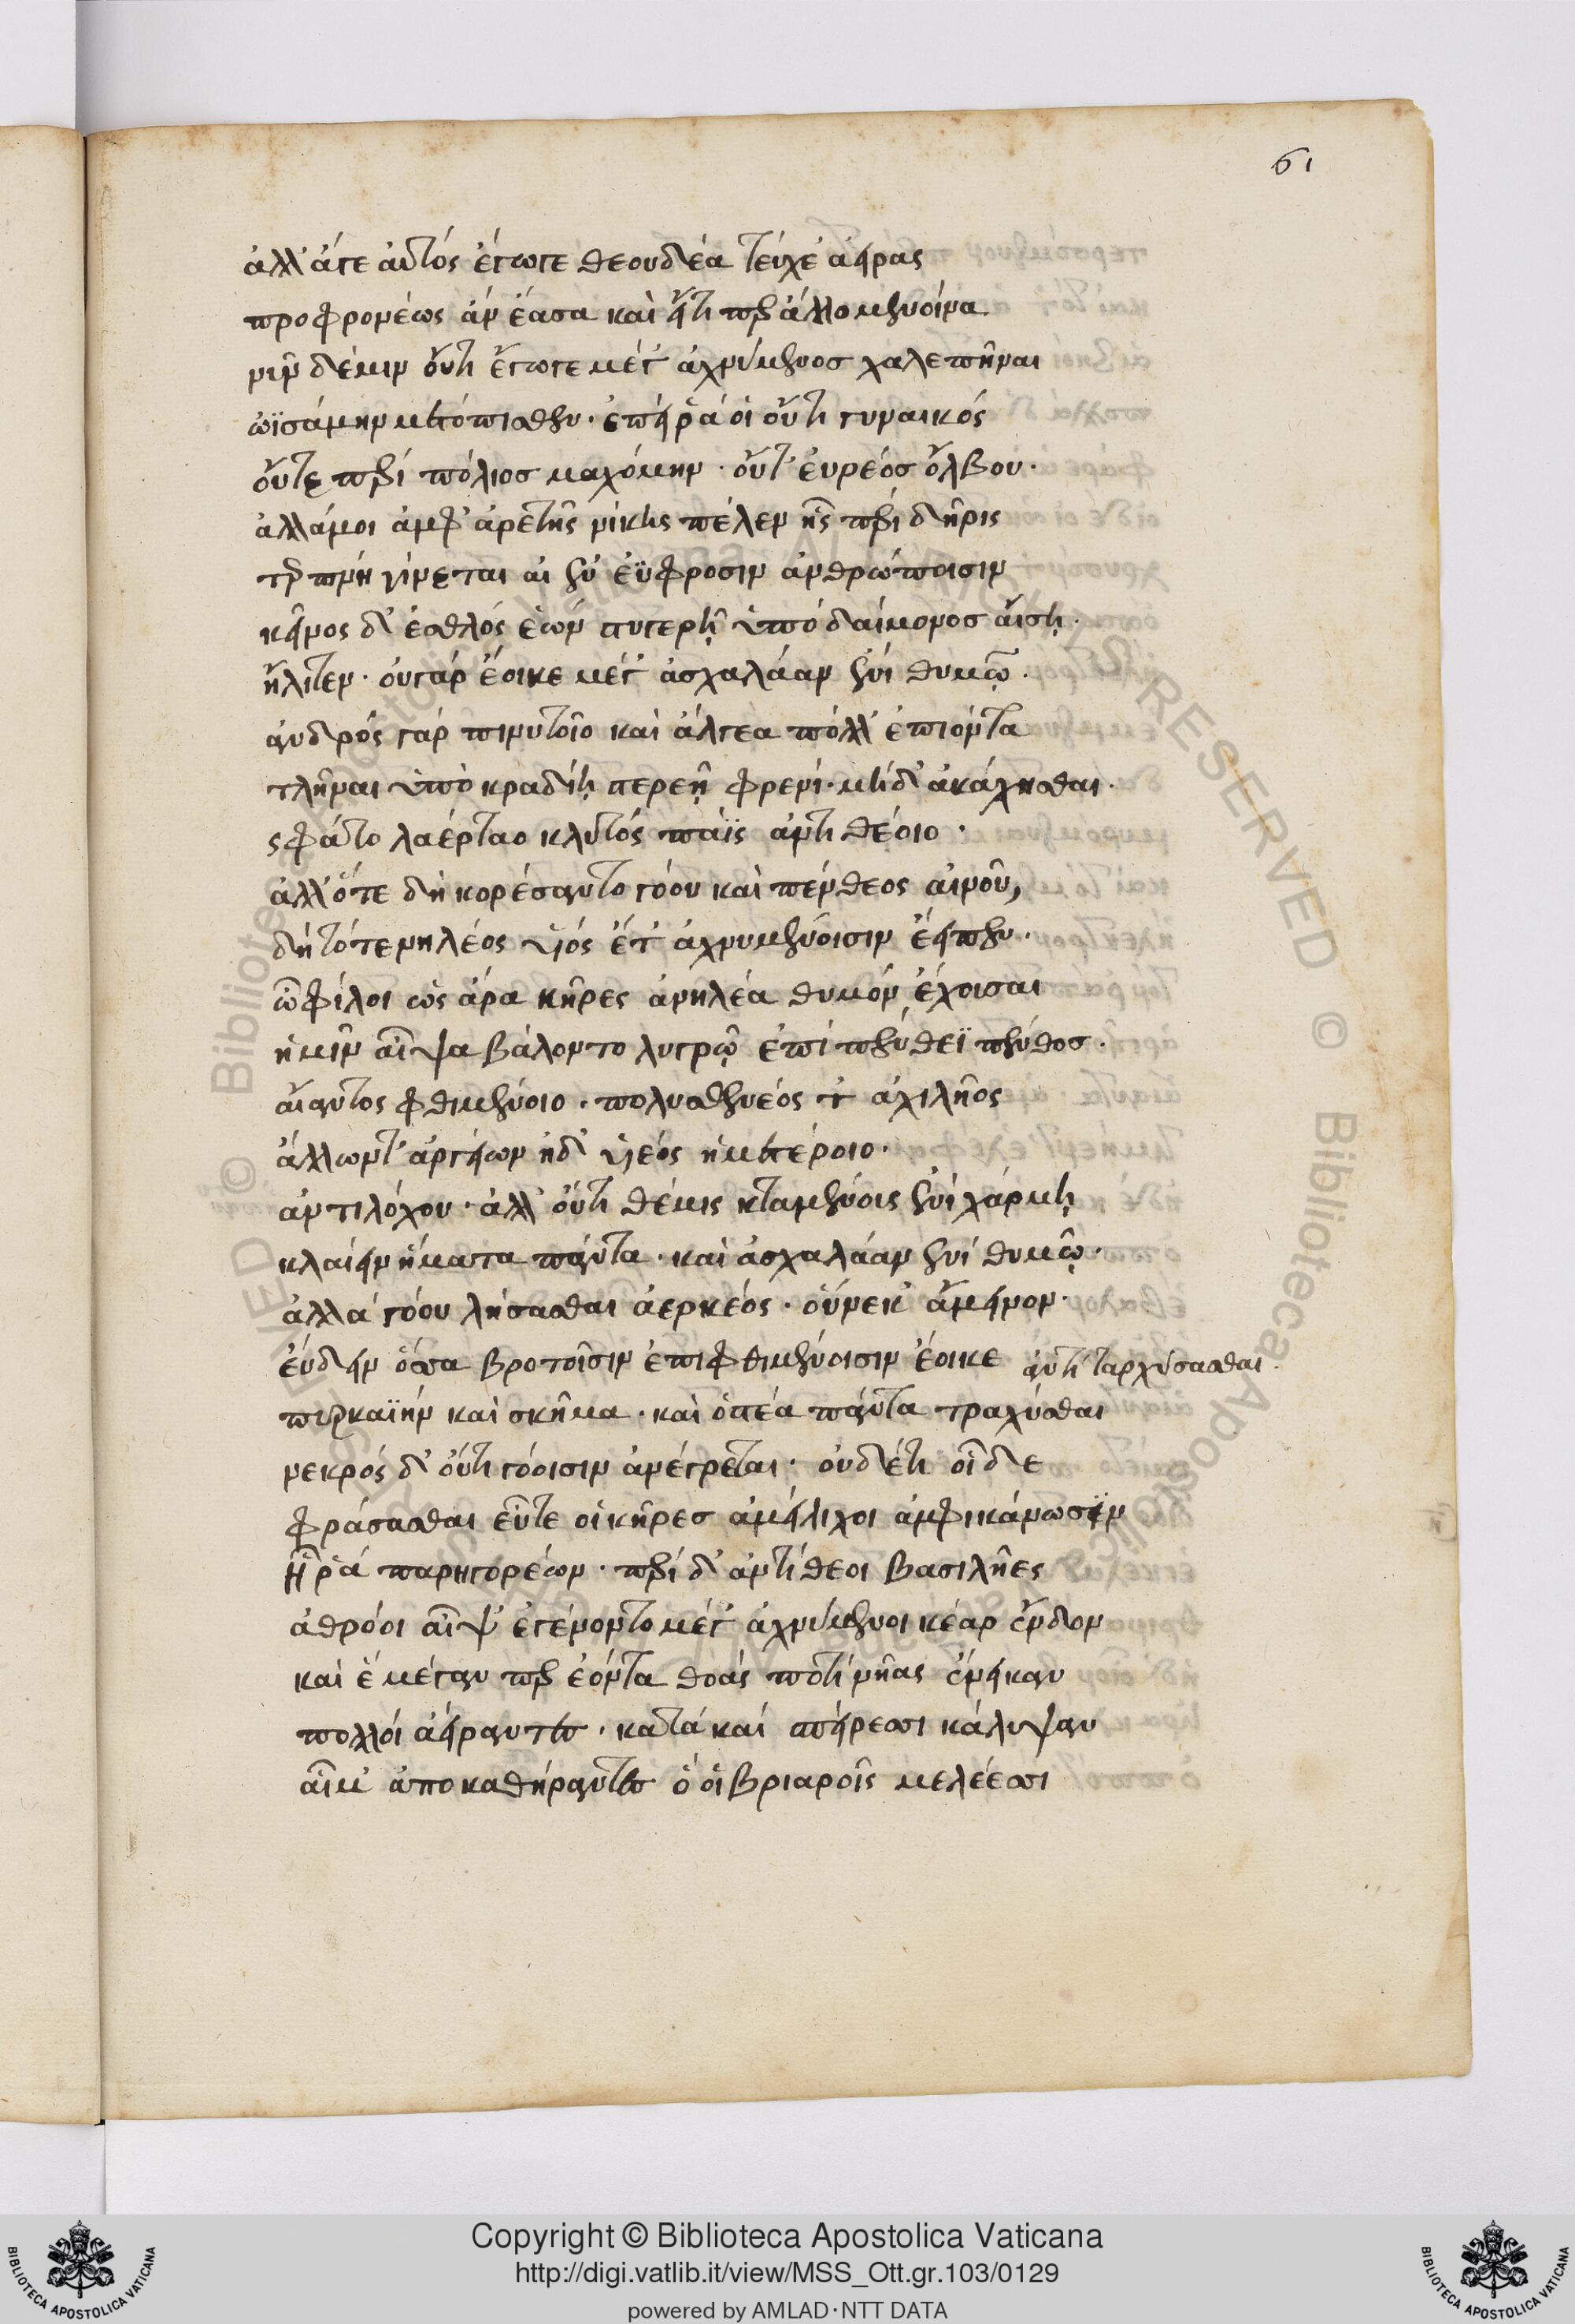 61
ἀλλ' ἄγε αὐτός ἔγωγε θεουδέα τεύχε' ἀείρας
προφρονέως ἂν ἔασα καὶ εἴτι περ ἄλλο μενοίνα
νῦν δέ μιν οὔτι ἔγωγε μέγ' ἀχνύμενος χαλεπῆναι
ὠϊσάμην μετόπισθεν. ἐπεί ῥά οἱ οὔτι γυναικός
οὔτε περί πόλιος μαχόμην. οὔτ' εὐρέος ὄλβου.
ἀλλά μοι ἀμφ' ἀρετῆς νίκης πέλεν ἧς περὶ δῆρις
τερπνή γίνεται αἰ ἐν ἐΰφροσιν ἀνθρώποισιν
κεῖνος δ' ἐσθλός ἐὼν στυγερῆ ὑπό δαίμονος αἴση.
ἤλιτεν. οὐ γάρ ἔοικε μέγ' ἀσχαλάαν ἐνί θυμῷ.
ἀνδρός γάρ πινυτοῖο καὶ ἄλγεα πόλλ' ἐπιόντα
τλῆναι ὑπὸ κραδίη στερεῇ φρενί. μηδ' ἀκάχησθαι.
ς φάτο λαέρταο κλυτός πάϊς ἀντιθέοιο.
ἀλλ' ὅτε δὴ κορέσαντο γόου καὶ πένθεος αἰνοῦ,
δὴ τότε νηλέος υἱός ἔτ' ἀχνυμένοισιν ἔειπεν.
ὦ φίλοι ὡς ἄρα κῆρες ἀνηλέα θυμόν ἔχοισαι
ἡμῖν αἶψα βάλοντο λυγρῷ ἐπί πένθεϊ πένθος.
αἴαντος φθιμένοιο. πολυσθενέος τ' ἀχιλῆος
ἄλλων τ' ἀργείων ἠδ' υἱέος ἡμετέροιο.
ἀντιλόχου. ἀλλ' οὔτι θέμις κταμένοις ἐνί χάρμη
κλαίειν ἤματα πάντα. καὶ ἀσχαλάαν ἐνί θυμῷ.
ἀλλά γόου λήσασθαι ἀερκέος. οὕνεκ' ἄμεινον.
εὕδειν ὅσσα βροτοῖσιν ἐπιφθιμένοισιν ἔοικε ἀντὶ ταρχύσασθαι.
πυρκαϊήν καὶ σκῆμα. καὶ ὀστέα πάντα τραχύσθαι
νεκρός δ' οὔτι γόοισιν ἀνέγρεται. οὐδέ τι οἶδε
φράσασθαι εὖτε οἱ κῆρες ἀμείλιχοι ἀμφικάνωσϊν
Ἦ ῥά παρηγορέων. περί δ' ἀντίθεοι βασιλῆες
ἀθρόοι αἶψ' ἐγένοντο μέγ' ἀχνύμενοι κέαρ ἔνδον
καί ἑ μέγαν περ ἐόντα θοάς ποτί νῆας ἔνεικαν
πολλοί ἀείραντες. κατά καί σπείρεσσι κάλυψαν
αἷμ' ἀποκαθήραντες ὅ οἱ βριαροῖς μελέεσσι
Copyright © Biblioteca Apostolica Vaticana
http://digi.vatlib.it/view/MSS_Ott.gr.103/0129
powered by AMLAD·NTT DATA